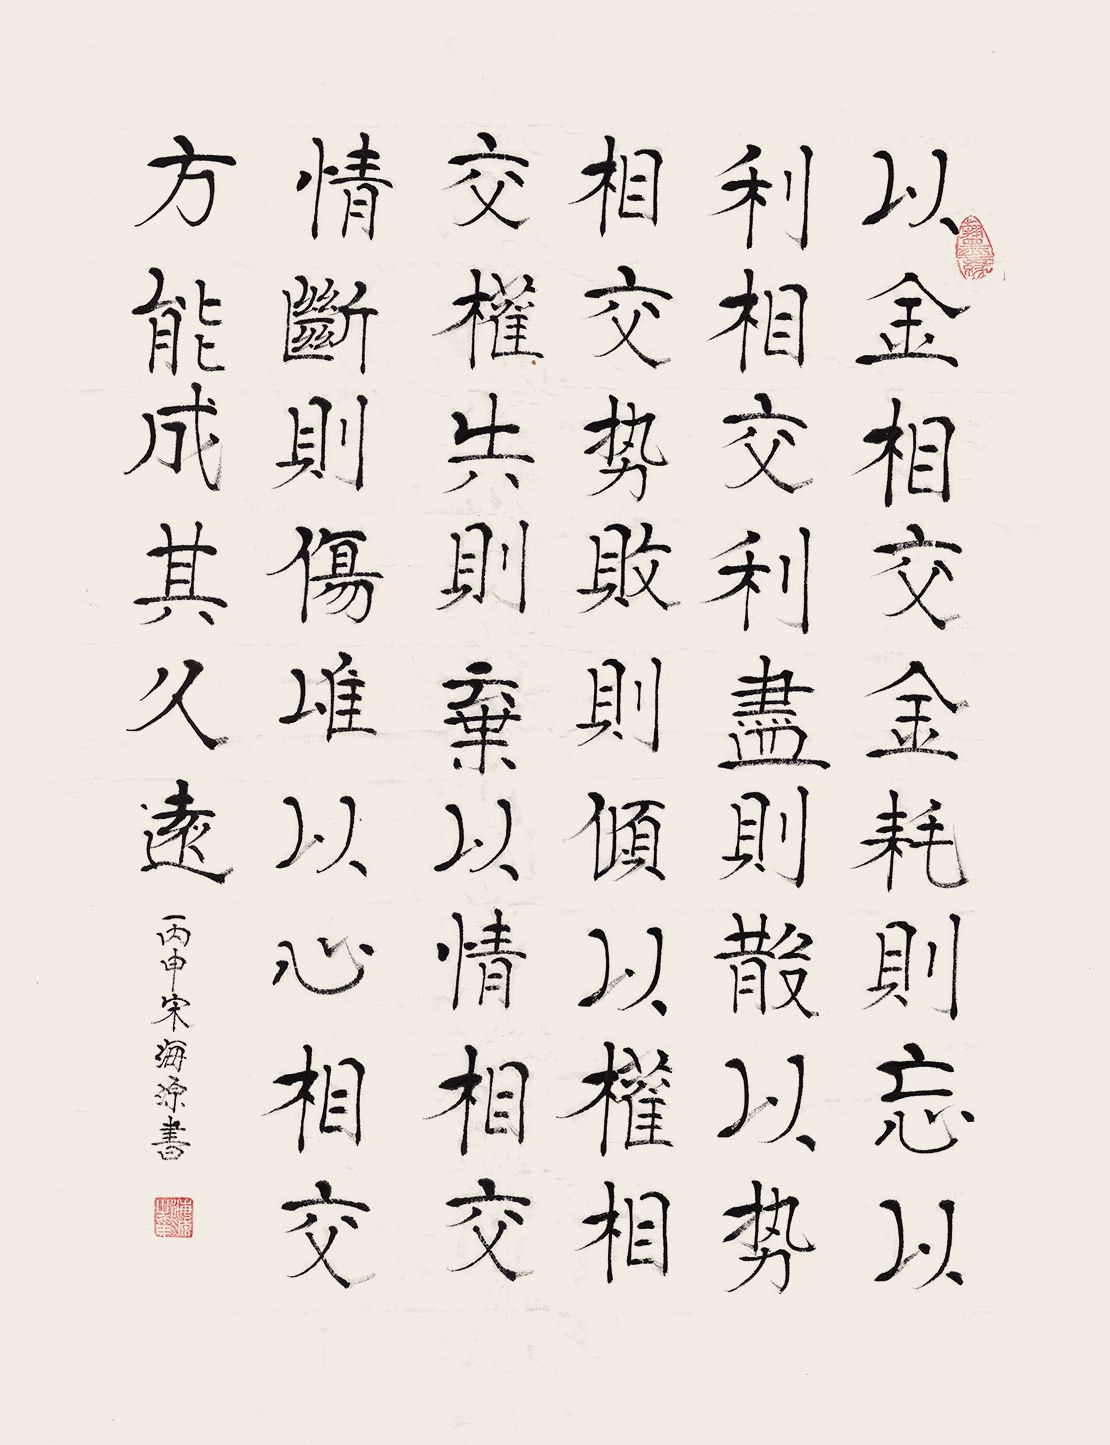 以金相交金耗則忘以
利相交利盡則散以势
相交势敗則傾以權相
交權失則棄以情相交
情斷則傷唯以心相交
方能成其久遠
丙申宋海源書